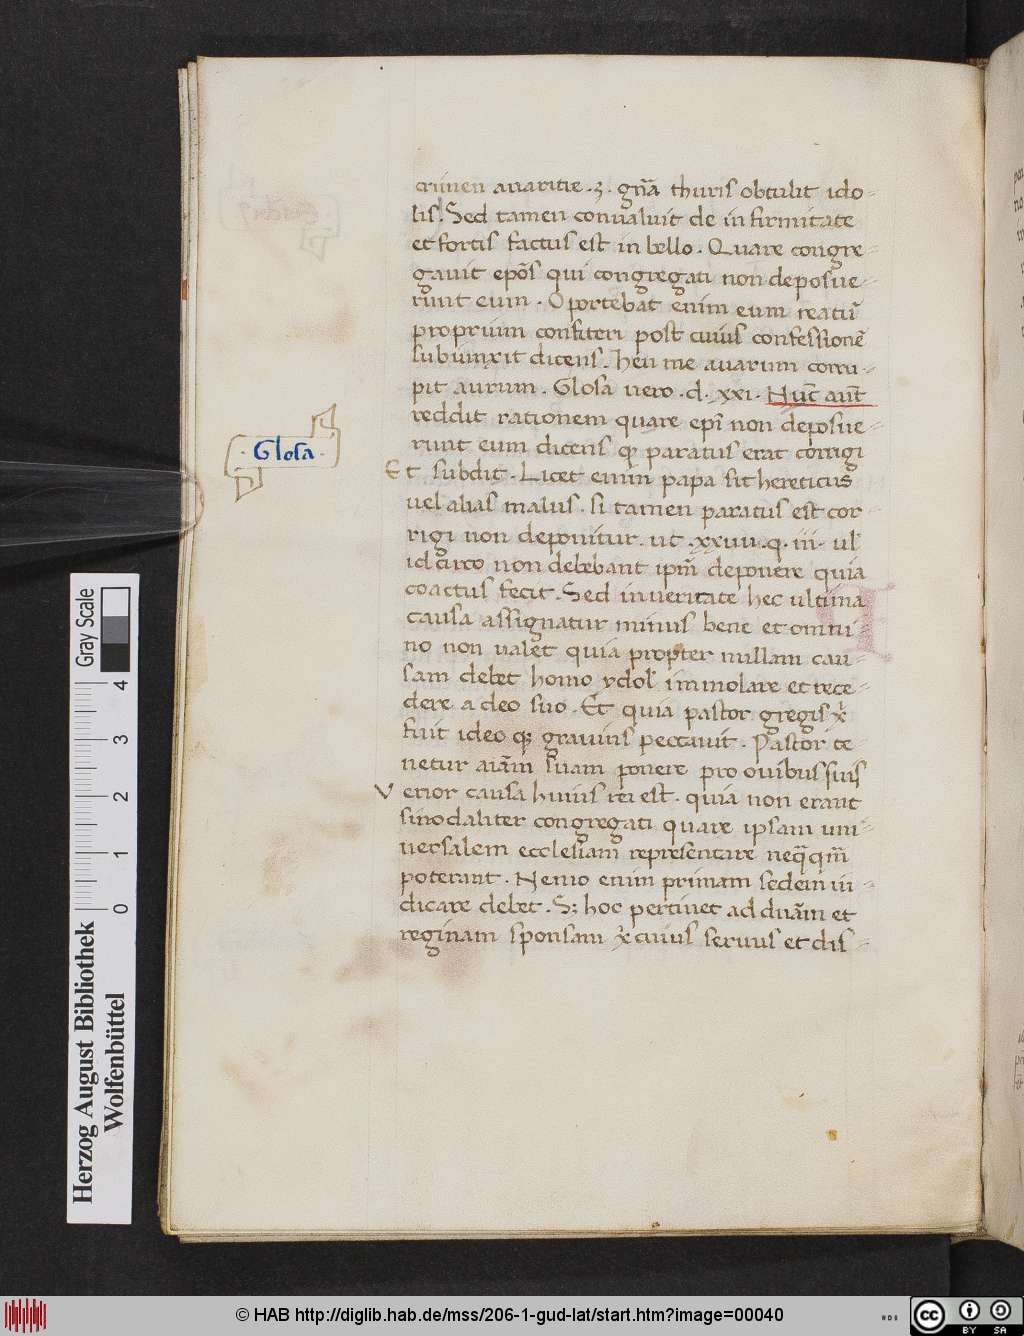 crimen avaritie .3. gnã thuris obtulit ido-
lis. Sed tamen convaluit de infirmitate
et fortis factus est in bello. Quare congre-
gavit epõs qui congregati non deposue-
runt eum. Oportebat enim eum reatũ
proprium confiteri post cuius confessionẽ
subiunxit dicens. heu me avarum corru-
pit aurum. Glosa vero .d. xxi. Nuc̃ aut̃
reddit rationem quare epĩ non deposue-
runt eum dicens qꝫ paratus erat corrigi
Et subdit. Licet enim papa sit hereticus
· Glosa ·
vel alias malus. si tamen paratus est cor-
rigi non deponitur. ut xxiiii. q. iii. ul̃
idcirco non debebant ipm̃ deponere quia
coactus fecit. Sed in veritate hec ultima
causa assignatur minus bene et omni-
no non valet quia propter nullam cau-
sam debet homo ydol' immolare et rece-
dere a deo suo. Et quia pastor gregis xp̃i
fuit ideo qꝫ gravius peccavit. Pastor te-
netur aiãm suam ponere pro ovibus suis
Verior causa huius rei est. quia non erant
sinodaliter congregati quare ipsam uni-
versalem ecclesiam representare neq̃qm̃
poterant. Nemo enim primam sedem iu-
dicare debet. Sꝫ hoc pertinet ad dnãm et
reginam sponsam xp̃i cuius servus et dis-
Gray Scale
4
3
2
1
0
Herzog August Bibliothek
Wolfenbüttel
© HAB http://diglib.hab.de/mss/206-1-gud-lat/start.htm?image=00040
cc
BY SA